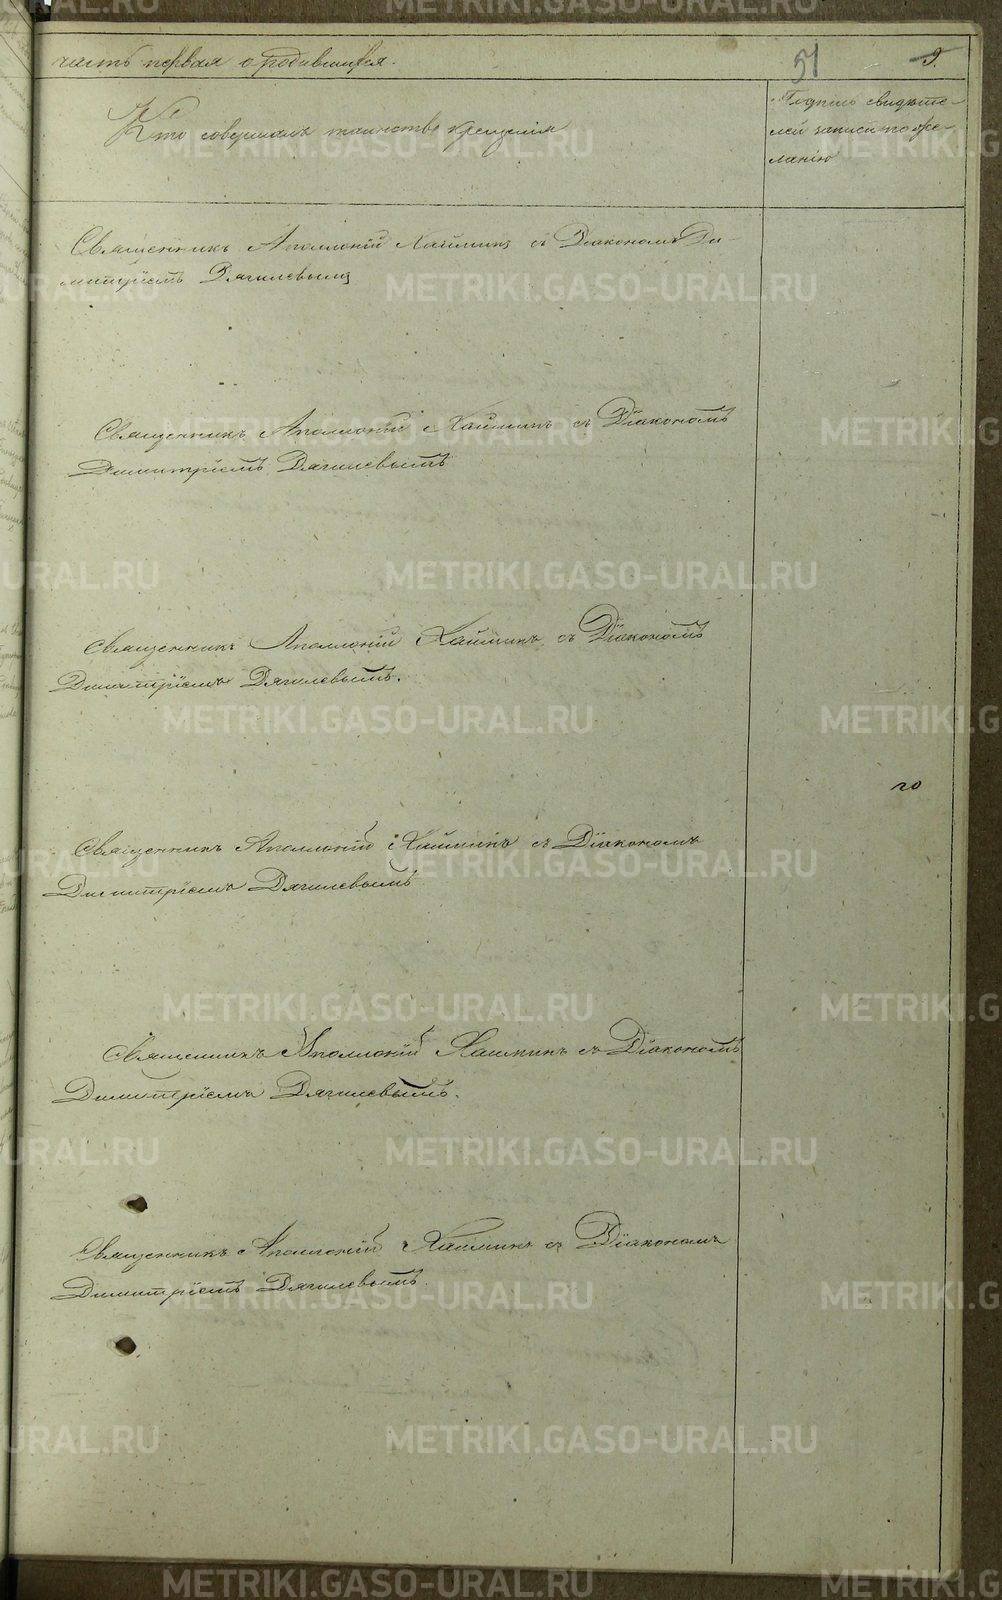 часть первая о родившихся.
51
9.
Кто совершалъ таинство крещенія
Подпись свидѣте-
лей записи по же-
ланію
Священникъ Аполлоній Хайминъ съ Діакономъ Ди-
митріемъ Дягилевымъ
Священникъ Аполлоній Хайминъ съ Діакономъ
Димитріемъ Дягилевымъ
Священникъ Аполлоній Хайминъ съ Діакономъ
Димитріемъ Дягилевымъ.
го
Священникъ Аполлоній Хайминъ съ Діакономъ
Димитріемъ Дягилевымъ
Священникъ Аполлоній Хайминъ съ Діакономъ
Димитріемъ Дягилевымъ.
Священникъ Аполлоній Хайминъ съ Діакономъ
Димитріемъ Дягилевымъ.
METRIKI.GASO-URAL.RU